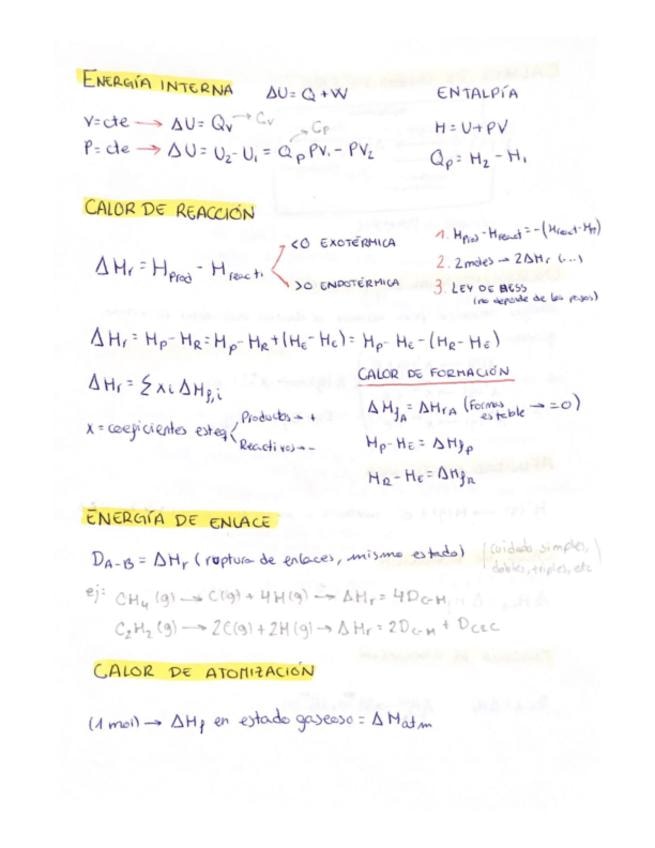 ENERGÍA INTERNA   ΔU = Q + W   ENTALPÍA
V=cte → ΔU = Qv → Cv   H = U + PV
P=cte → ΔU = U₂ - U₁ = Qp PV₁ - PV₂   Cp   Qp = H₂ - H₁
CALOR DE REACCIÓN
ΔHr = Hprod - Hreact.
<0 EXOTÉRMICA
>0 ENDOTÉRMICA
1. Hprod - Hreact = -(Hreact - Hp)
2. 2moles → 2ΔHr (...)
3. LEY DE HESS
(no depende de los pasos)
ΔHr = Hp - HR = Hp - HR + (HE - HE) = Hp - HE - (HR - HE)
ΔHr = Σ xi ΔHf,i
x = coeficientes esteq
Productos → +
Reactivos → -
CALOR DE FORMACIÓN
ΔHfA = ΔHrA (Formas estable → = 0)
Hp - HE = ΔHfp
HR - HE = ΔHfR
ENERGÍA DE ENLACE
DA-B = ΔHr (ruptura de enlaces, mismo estado) (cuidado simples,
dobles, triples, etc
ej: CH₄ (g) → C(g) + 4H(g) → ΔHr = 4DC-H
C₂H₂ (g) → 2C(g) + 2H(g) → ΔHr = 2DC-H + DC≡C
CALOR DE ATOMIZACIÓN
(1 mol) → ΔHf en estado gaseoso = ΔHatm